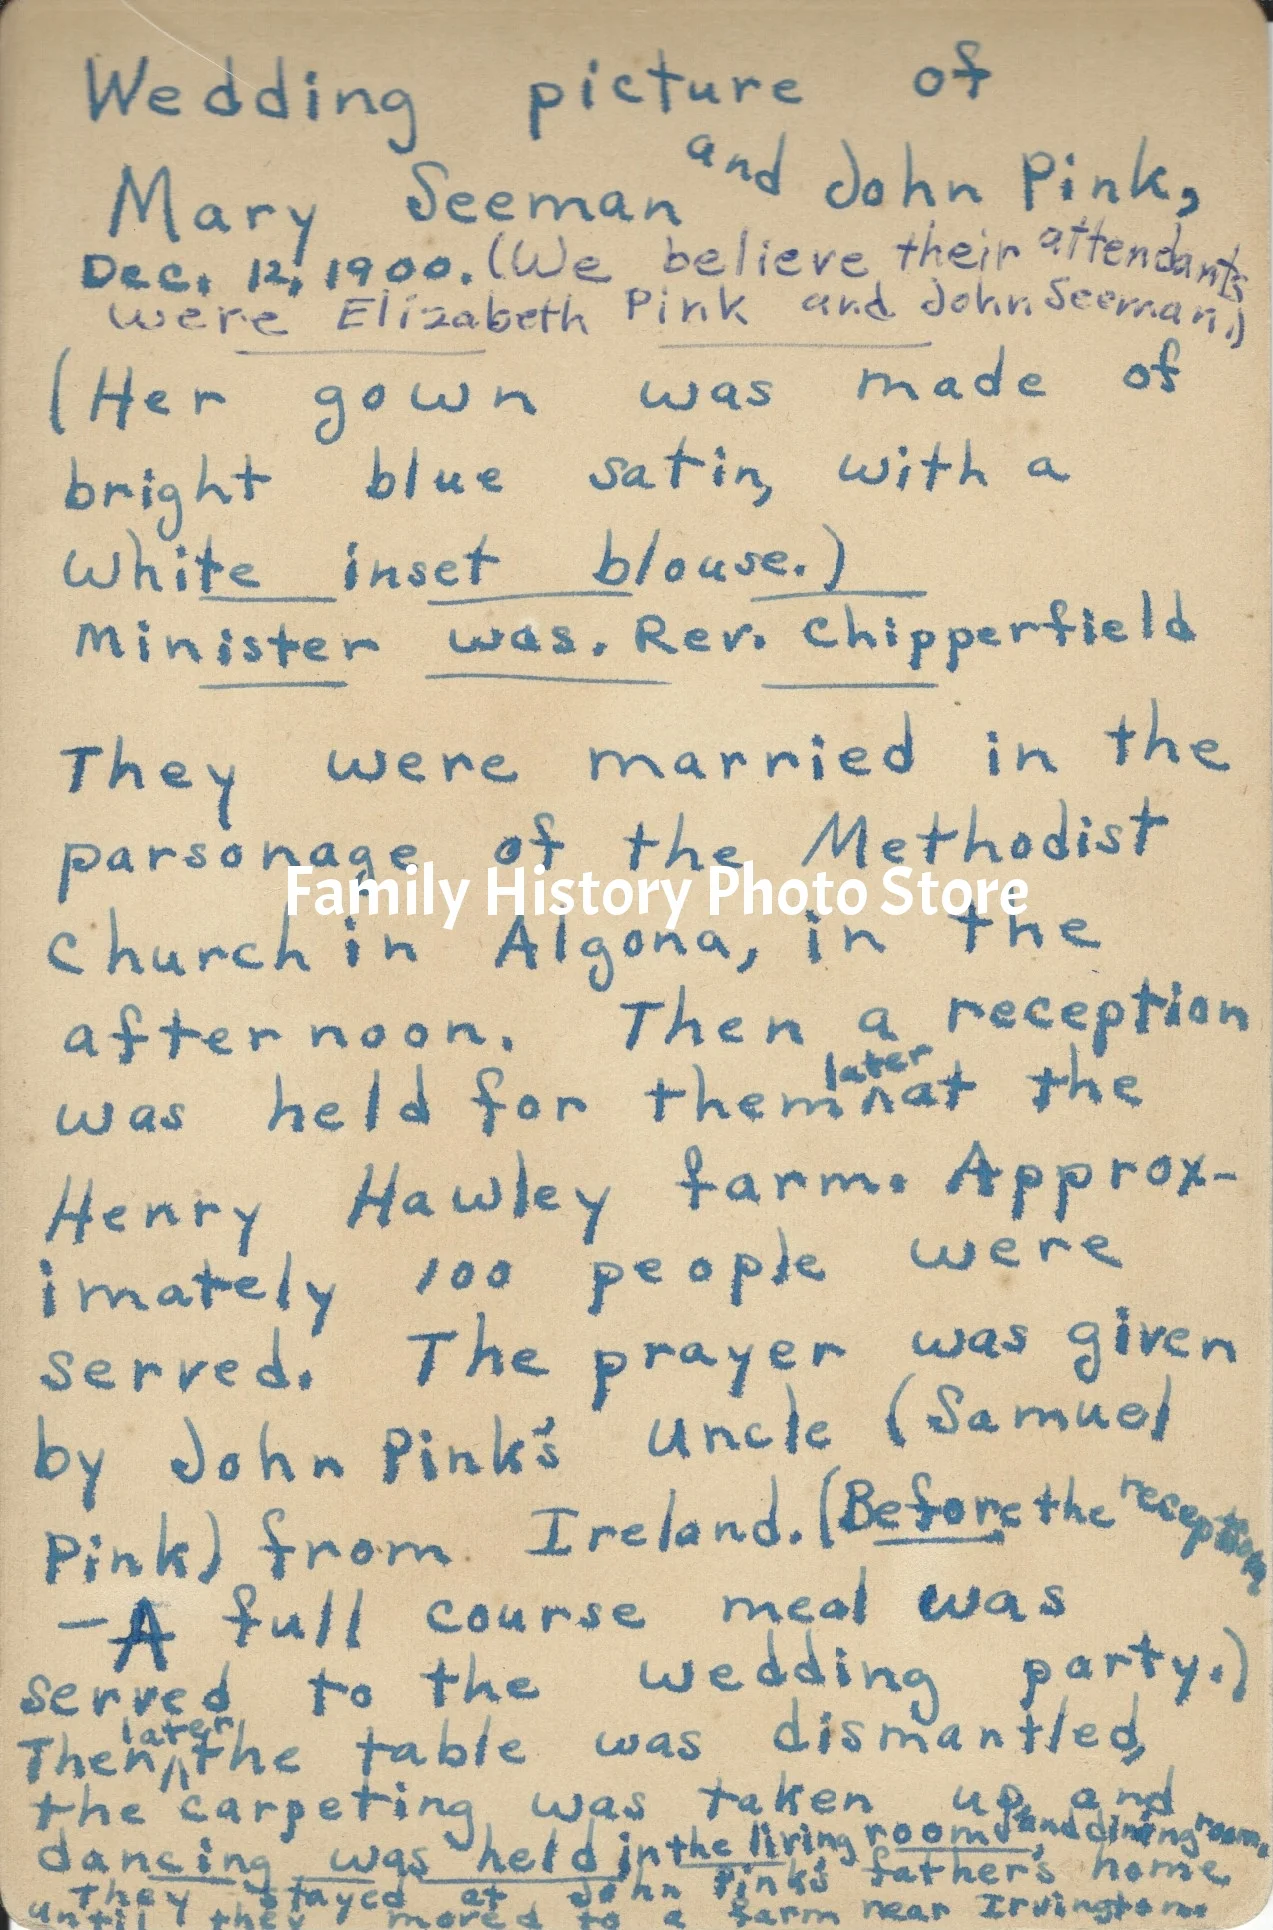 Wedding picture of
Mary Seeman and John Pink,
Dec. 12, 1900. (We believe their attendants
were Elizabeth Pink and John Seeman.)
(Her gown was made of
bright blue satin, with a
white inset blouse.)
Minister was. Rev. Chipperfield
They were married in the
parsonage of the Methodist
Family History Photo Store
church in Algona, in the
afternoon. Then a reception
was held for them later at the
Henry Hawley farm. Approx-
imately 100 people were
served. The prayer was given
by John Pink's Uncle (Samuel
Pink) from Ireland. (Before the reception
- A full course meal was
served to the wedding party.)
Then later the table was dismantled,
the carpeting was taken up and
dancing was held in the living room and dining room.
They stayed at John Pink's father's home
until they moved to a farm near Irvington.